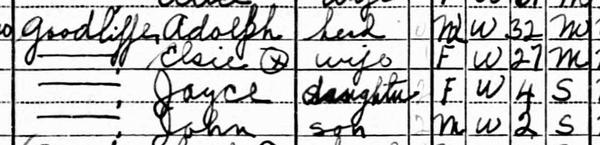 Goodliffe, Adolph head M W 32 M
——, Elsie ⓧ wife F W 27 M
——, Joyce daughter F W 4 S
——, John son M W 2 S